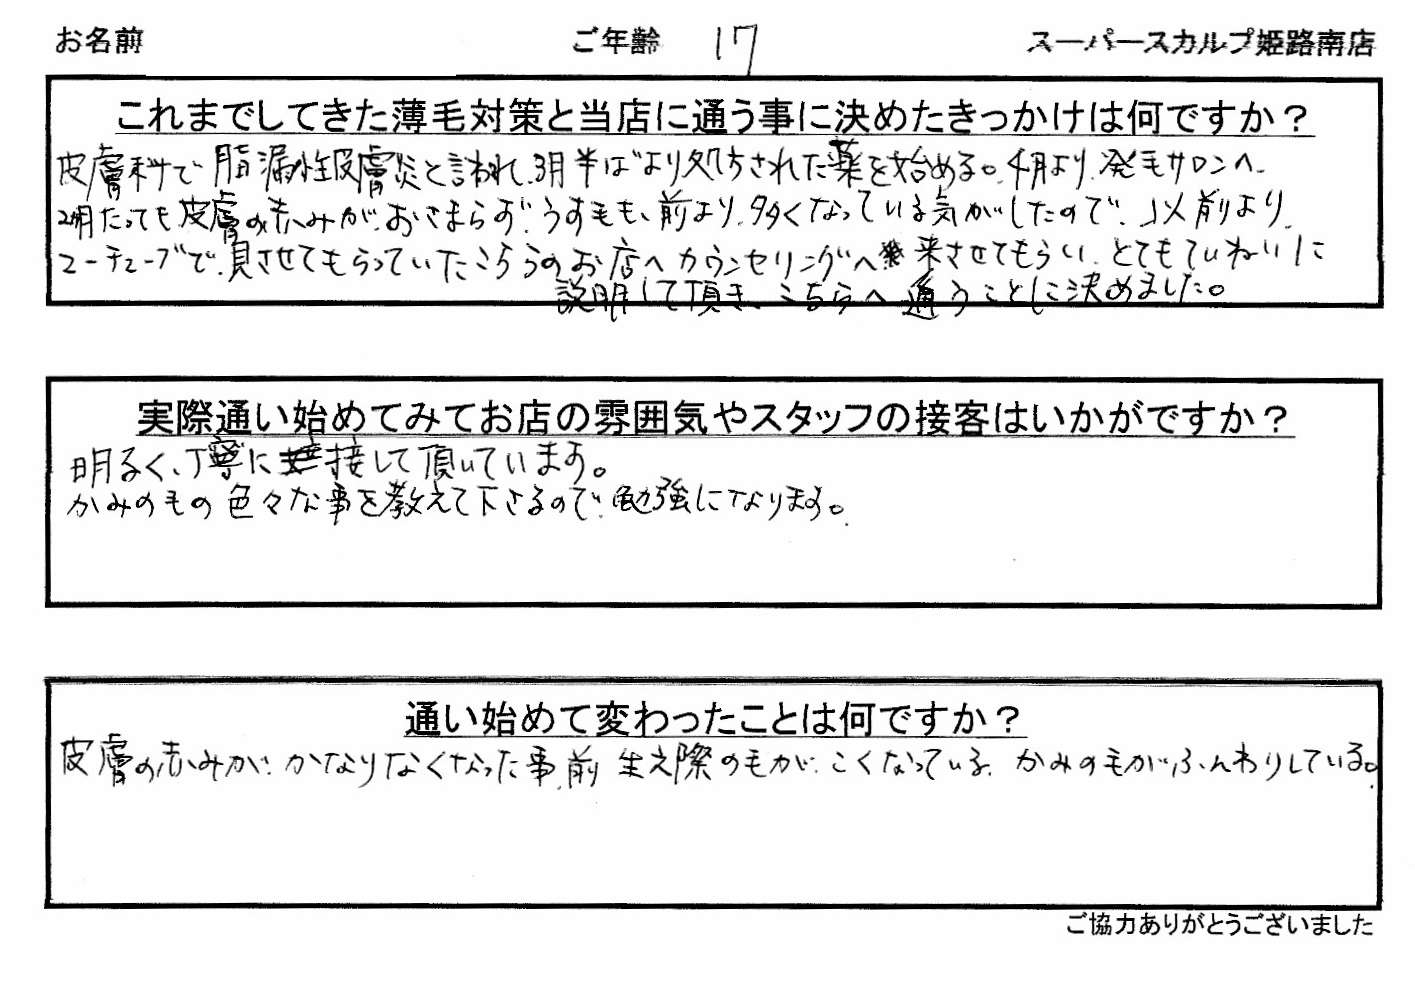 お名前 ご年齢 17 スーパースカルプ姫路南店
これまでしてきた薄毛対策と当店に通う事に決めたきっかけは何ですか？
皮膚科で脂漏性皮膚炎と言われ、3月半ばより処方された薬を始める。4月より、発毛サロンへ
2ヶ月たっても皮膚の赤みが、おさまらず、うす毛も、前より、多くなっている気がしたので、以前より、
ユーチューブで、見させてもらっていたこちらのお店へカウンセリングへ来させてもらい、とてもていねいに
説明して頂き、こちらへ通うことに決めました。
実際通い始めてみてお店の雰囲気やスタッフの接客はいかがですか？
明るく、丁寧に接して頂いています。
かみのもの色々な事を教えて下さるので、勉強になります。
通い始めて変わったことは何ですか？
皮膚の赤みが、かなりなくなった事、前 生え際の毛が、こくなっている、かみの毛がふんわりしている。
ご協力ありがとうございました